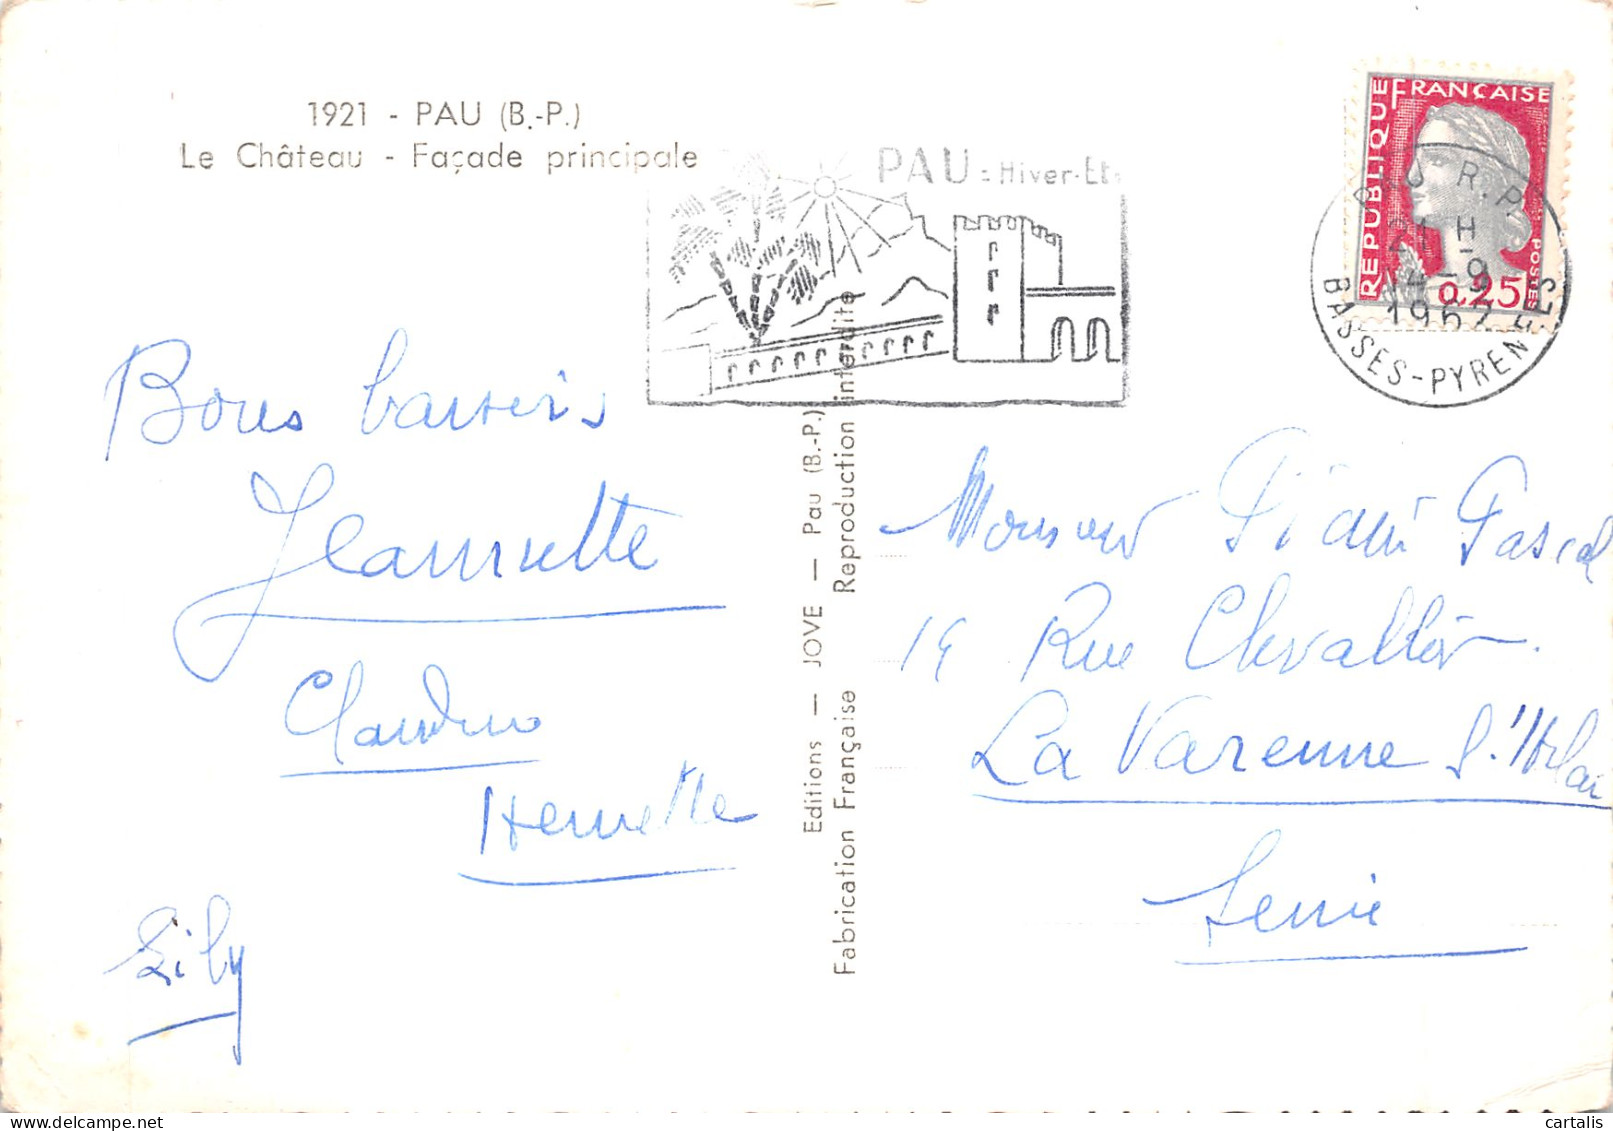 1921 - PAU (B.-P.)
Le Château - Façade principale
PAU = Hiver-Eté
RÉPUBLIQUE FRANÇAISE
POSTES
0,25
R.P.
H
BASSES-PYRENEES
Bons baisers
Jeannette
Claudine
Henriette
Lily
Editions — JOVE — Pau (B.-P.)
Fabrication Française Reproduction interdite
Monsieur Pascal
14 Rue Chevallier
La Varenne S.t Hilai
Seine
cartalis